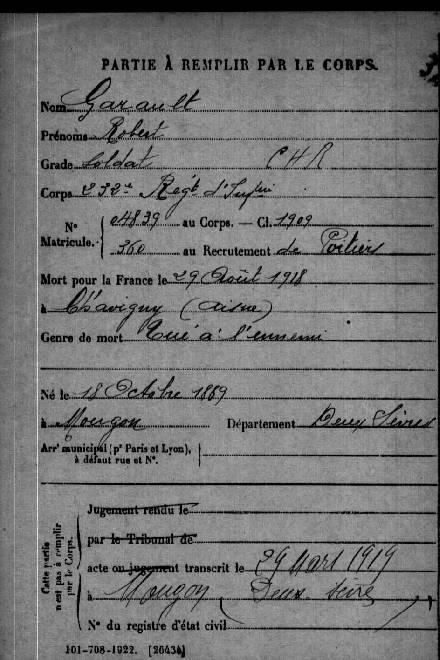 PARTIE À REMPLIR PAR LE CORPS.
Nom Garault
Prénoms Robert
Grade Soldat C H R
Corps 232e Régt d'Infie
N° Matricule. 04839 au Corps. — Cl. 1909
360 au Recrutement de Poitiers
Mort pour la France le 29 Août 1918
à Chavigny (Aisne)
Genre de mort Tué à l'ennemi
Né le 18 Octobre 1889
à Mougon Département Deux Sèvres
Arrt municipal (pr Paris et Lyon),
à défaut rue et N°.
Cette partie
n'est pas à remplir
par le Corps.
Jugement rendu le
par le Tribunal de
acte ou jugement transcrit le 29 Mars 1919
à Mougon (Deux-Sèvres)
N° du registre d'état civil
101-708-1922. [26434]